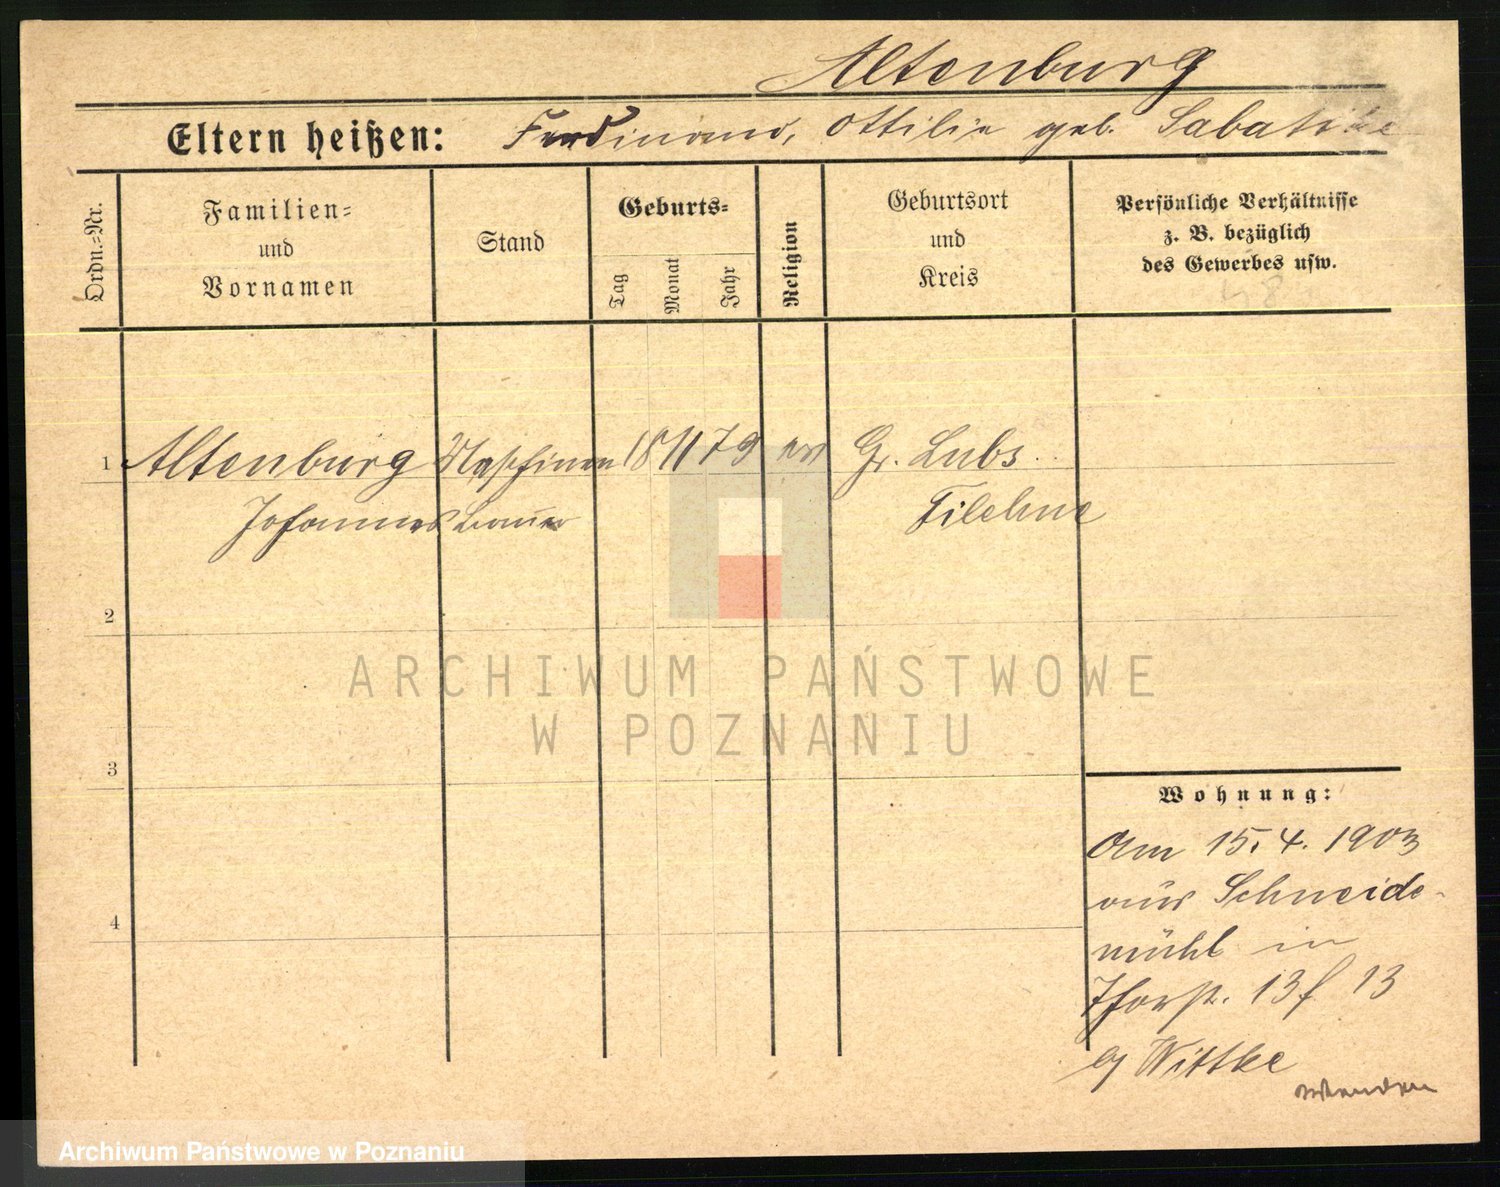 Altenburg
Eltern heißen: Ferdinand, Ottilie geb. Sabatzke
Ordn.-Nr.
Familien-
und
Vornamen
Stand
Geburts-
Tag
Monat
Jahr
Religion
Geburtsort
und
Kreis
Persönliche Verhältnisse
z. B. bezüglich
des Gewerbes usw.
48
1 Altenburg Maschinen 18 11 79 ev Gr. Lubs
Johannes bauer Filehne
2
3
4
Wohnung:
Am 15.4.1903
aus Schneide-
mühl in
Thorst. 13f 13
by Wittke
wenden
ARCHIWUM PAŃSTWOWE
W POZNANIU
Archiwum Państwowe w Poznaniu